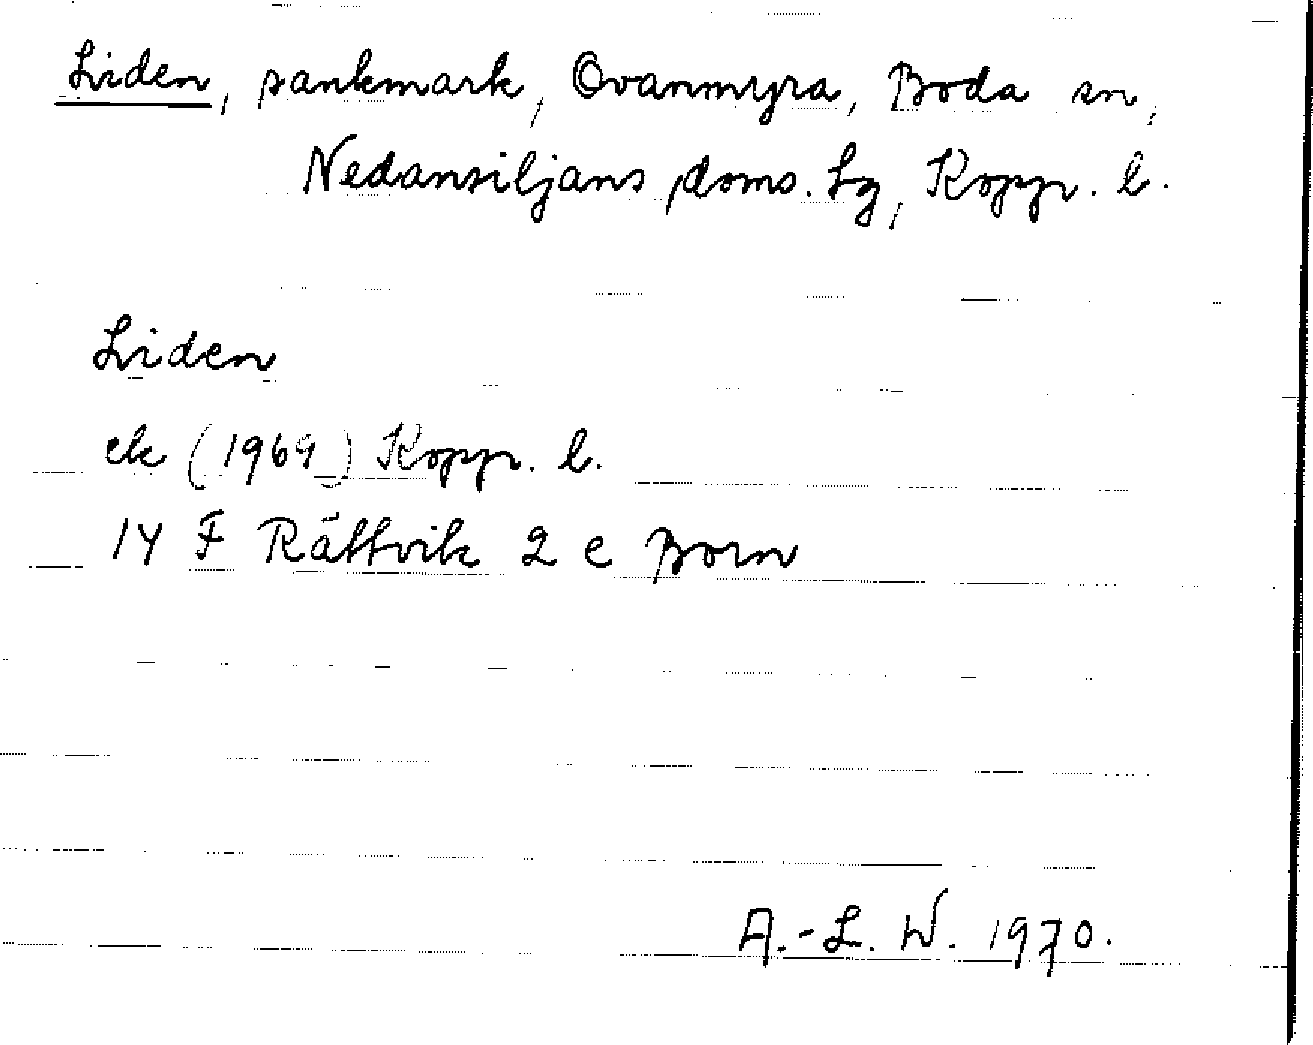 Liden, sankmark, Ovanmyra, Boda sn,
Nedansiljans doms. lg, Kopp. l.
Liden
ek (1969) Kopp. l.
14 F Rättvik 2 e Born
A.-L. W. 1970.